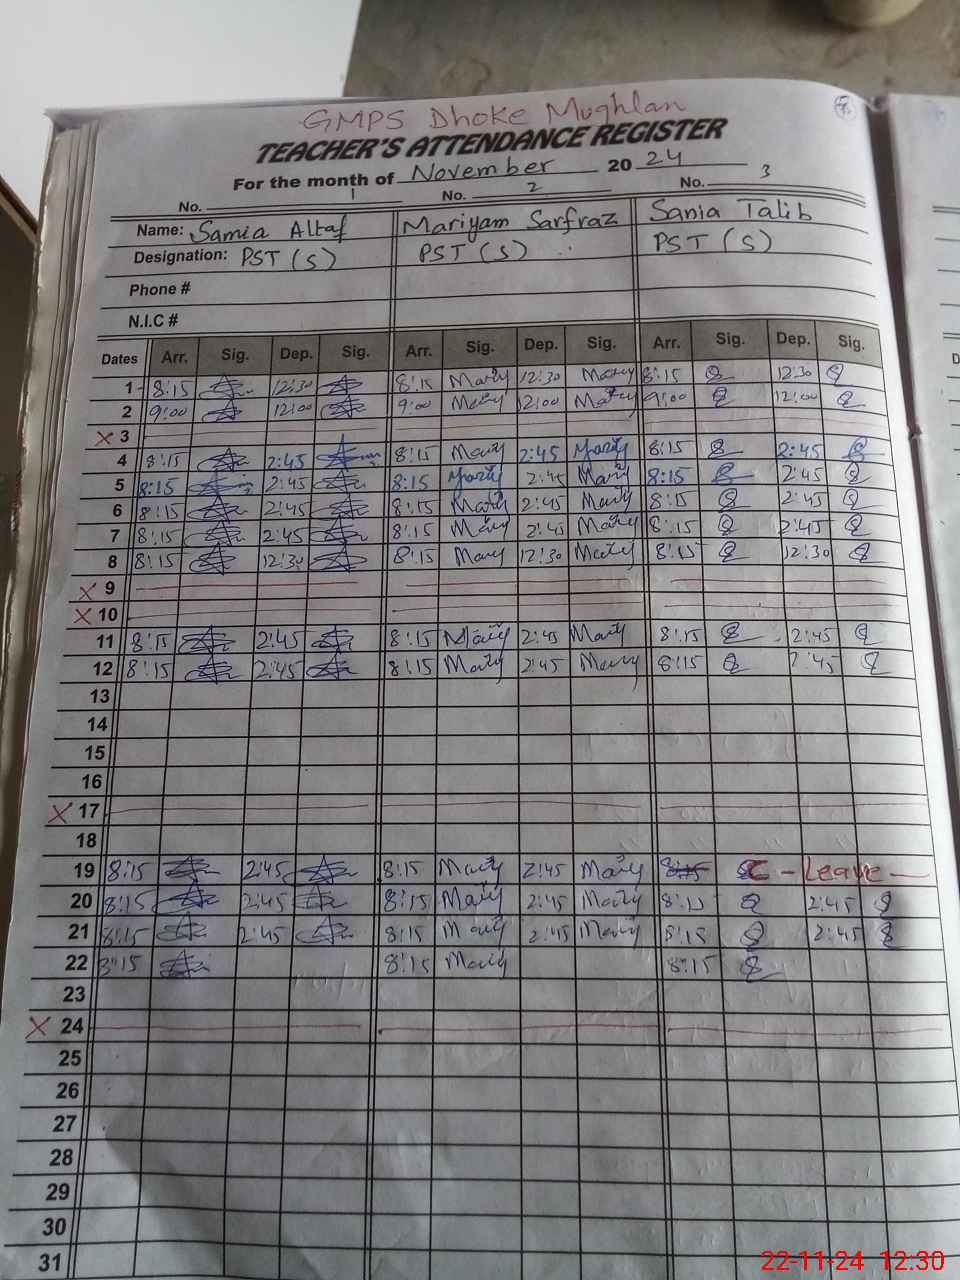 GMPS Dhoke Mughlan
TEACHER'S ATTENDANCE REGISTER
For the month of November 20 24
No. 1 No. 2 No. 3
Name: Samia Altaf Mariyam Sarfraz Sania Talib
Designation: PST (S) PST (S) PST (S)
Phone #
N.I.C #
Dates Arr. Sig. Dep. Sig. Arr. Sig. Dep. Sig. Arr. Sig. Dep. Sig.
1 8:15 12:30 8:15 Mary 12:30 Mary 8:15 12:30
2 9:00 12:00 9:00 Mary 12:00 Mary 9:00 12:00
X 3
4 8:15 2:45 8:15 Mary 2:45 Mary 8:15 2:45
5 8:15 2:45 8:15 Mary 2:45 Mary 8:15 2:45
6 8:15 2:45 8:15 Mary 2:45 Mary 8:15 2:45
7 8:15 2:45 8:15 Mary 2:45 Mary 8:15 2:45
8 8:15 12:30 8:15 Mary 12:30 Mary 8:15 12:30
X 9
X 10
11 8:15 2:45 8:15 Mary 2:45 Mary 8:15 2:45
12 8:15 2:45 8:15 Mary 2:45 Mary 8:15 2:45
13
14
15
16
X 17
18
19 8:15 2:45 8:15 Mary 2:45 Mary 8:15 C - Leave -
20 8:15 2:45 8:15 Mary 2:45 Mary 8:15 2:45
21 8:15 2:45 8:15 Mary 2:45 Mary 8:15 2:45
22 8:15 8:15 Mary 8:15
23
X 24
25
26
27
28
29
30
31
22-11-24 12:30